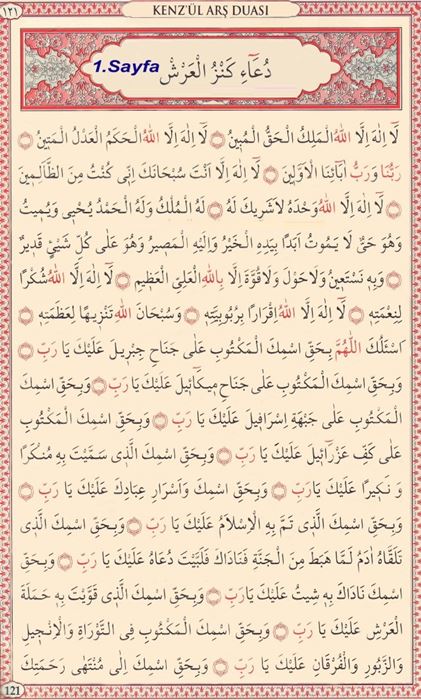 ١٢١ KENZ'ÜL ARŞ DUASI
1.Sayfa دُعَاءِ كَنْزُ الْعَرْشْ
لَا إِلٰهَ إِلَّا اللهُ الْمَلِكُ الْحَقُّ الْمُبِينُ ۞ لَا إِلٰهَ إِلَّا اللهُ الْحَكَمُ الْعَدْلُ الْمَتِينُ ۞
رَبُّنَا وَرَبُّ اٰبَائِنَا الْاَوَّلِينَ ۞ لَا اِلٰهَ اِلَّا اَنْتَ سُبْحَانَكَ اِنِّى كُنْتُ مِنَ الظَّالِمِينَ
۞ لَا اِلٰهَ اِلَّا اللهُ وَحْدَهُ لَاشَرِيكَ لَهُ ۞ لَهُ الْمُلْكُ وَلَهُ الْحَمْدُ يُحْيِى وَيُمِيتُ
وَهُوَ حَىٌّ لَا يَمُوتُ اَبَدًا بِيَدِهِ الْخَيْرُ وَاِلَيْهِ الْمَصِيرُ وَهُوَ عَلٰى كُلِّ شَيْئٍ قَدِيرٌ
۞ وَبِهِ نَسْتَعِينُ وَلَاحَوْلَ وَلَاقُوَّةَ اِلَّا بِاللهِ الْعَلِىِّ الْعَظِيمِ ۞ لَا اِلٰهَ اِلَّا اللهُ شُكْرًا
لِنِعْمَتِهِ ۞ لَا اِلٰهَ اِلَّا اللهُ اِقْرَارًا بِرُبُوبِيَّتِهِ ۞ وَسُبْحَانَ اللهِ تَنْزِيهًا لِعَظَمَتِهِ ۞
اَسْئَلُكَ اللّٰهُمَّ بِحَقِّ اسْمِكَ الْمَكْتُوبِ عَلٰى جَنَاحِ جِبْرِيلَ عَلَيْكَ يَا رَبِّ ۞
وَبِحَقِّ اسْمِكَ الْمَكْتُوبِ عَلٰى جَنَاحِ مِيكَآئِيلَ عَلَيْكَ يَا رَبِّ ۞ وَبِحَقِّ اسْمِكَ
الْمَكْتُوبِ عَلٰى جَبْهَةِ اِسْرَافِيلَ عَلَيْكَ يَا رَبِّ ۞ وَبِحَقِّ اسْمِكَ الْمَكْتُوبِ
عَلٰى كَفِّ عَزْرَآئِيلَ عَلَيْكَ يَا رَبِّ ۞ وَبِحَقِّ اسْمِكَ الَّذِى سَمَّيْتَ بِهِ مُنْكَرًا
وَ نَكِيرًا عَلَيْكَ يَارَبِّ ۞ وَبِحَقِّ اسْمِكَ وَاَسْرَارِ عِبَادِكَ عَلَيْكَ يَا رَبِّ ۞
وَبِحَقِّ اسْمِكَ الَّذِى تَمَّ بِهِ الْاِسْلَامُ عَلَيْكَ يَا رَبِّ ۞ وَبِحَقِّ اسْمِكَ الَّذِى
تَلَقَّاهُ اٰدَمُ لَمَّا هَبَطَ مِنَ الْجَنَّةِ فَنَادَاكَ فَلَبَّيْتَ دُعَاهُ عَلَيْكَ يَا رَبِّ ۞ وَبِحَقِّ
اسْمِكَ نَادَاكَ بِهِ شِيتُ عَلَيْكَ يَارَبِّ ۞ وَبِحَقِّ اسْمِكَ الَّذِى قَوَّيْتَ بِهِ حَمَلَةَ
الْعَرْشِ عَلَيْكَ يَا رَبِّ ۞ وَبِحَقِّ اسْمِكَ الْمَكْتُوبِ فِى التَّوْرَاةِ وَالْاِنْجِيلِ
وَالزَّبُورِ وَالْفُرْقَانِ عَلَيْكَ يَا رَبِّ ۞ وَبِحَقِّ اسْمِكَ اِلٰى مُنْتَهٰى رَحْمَتِكَ
121